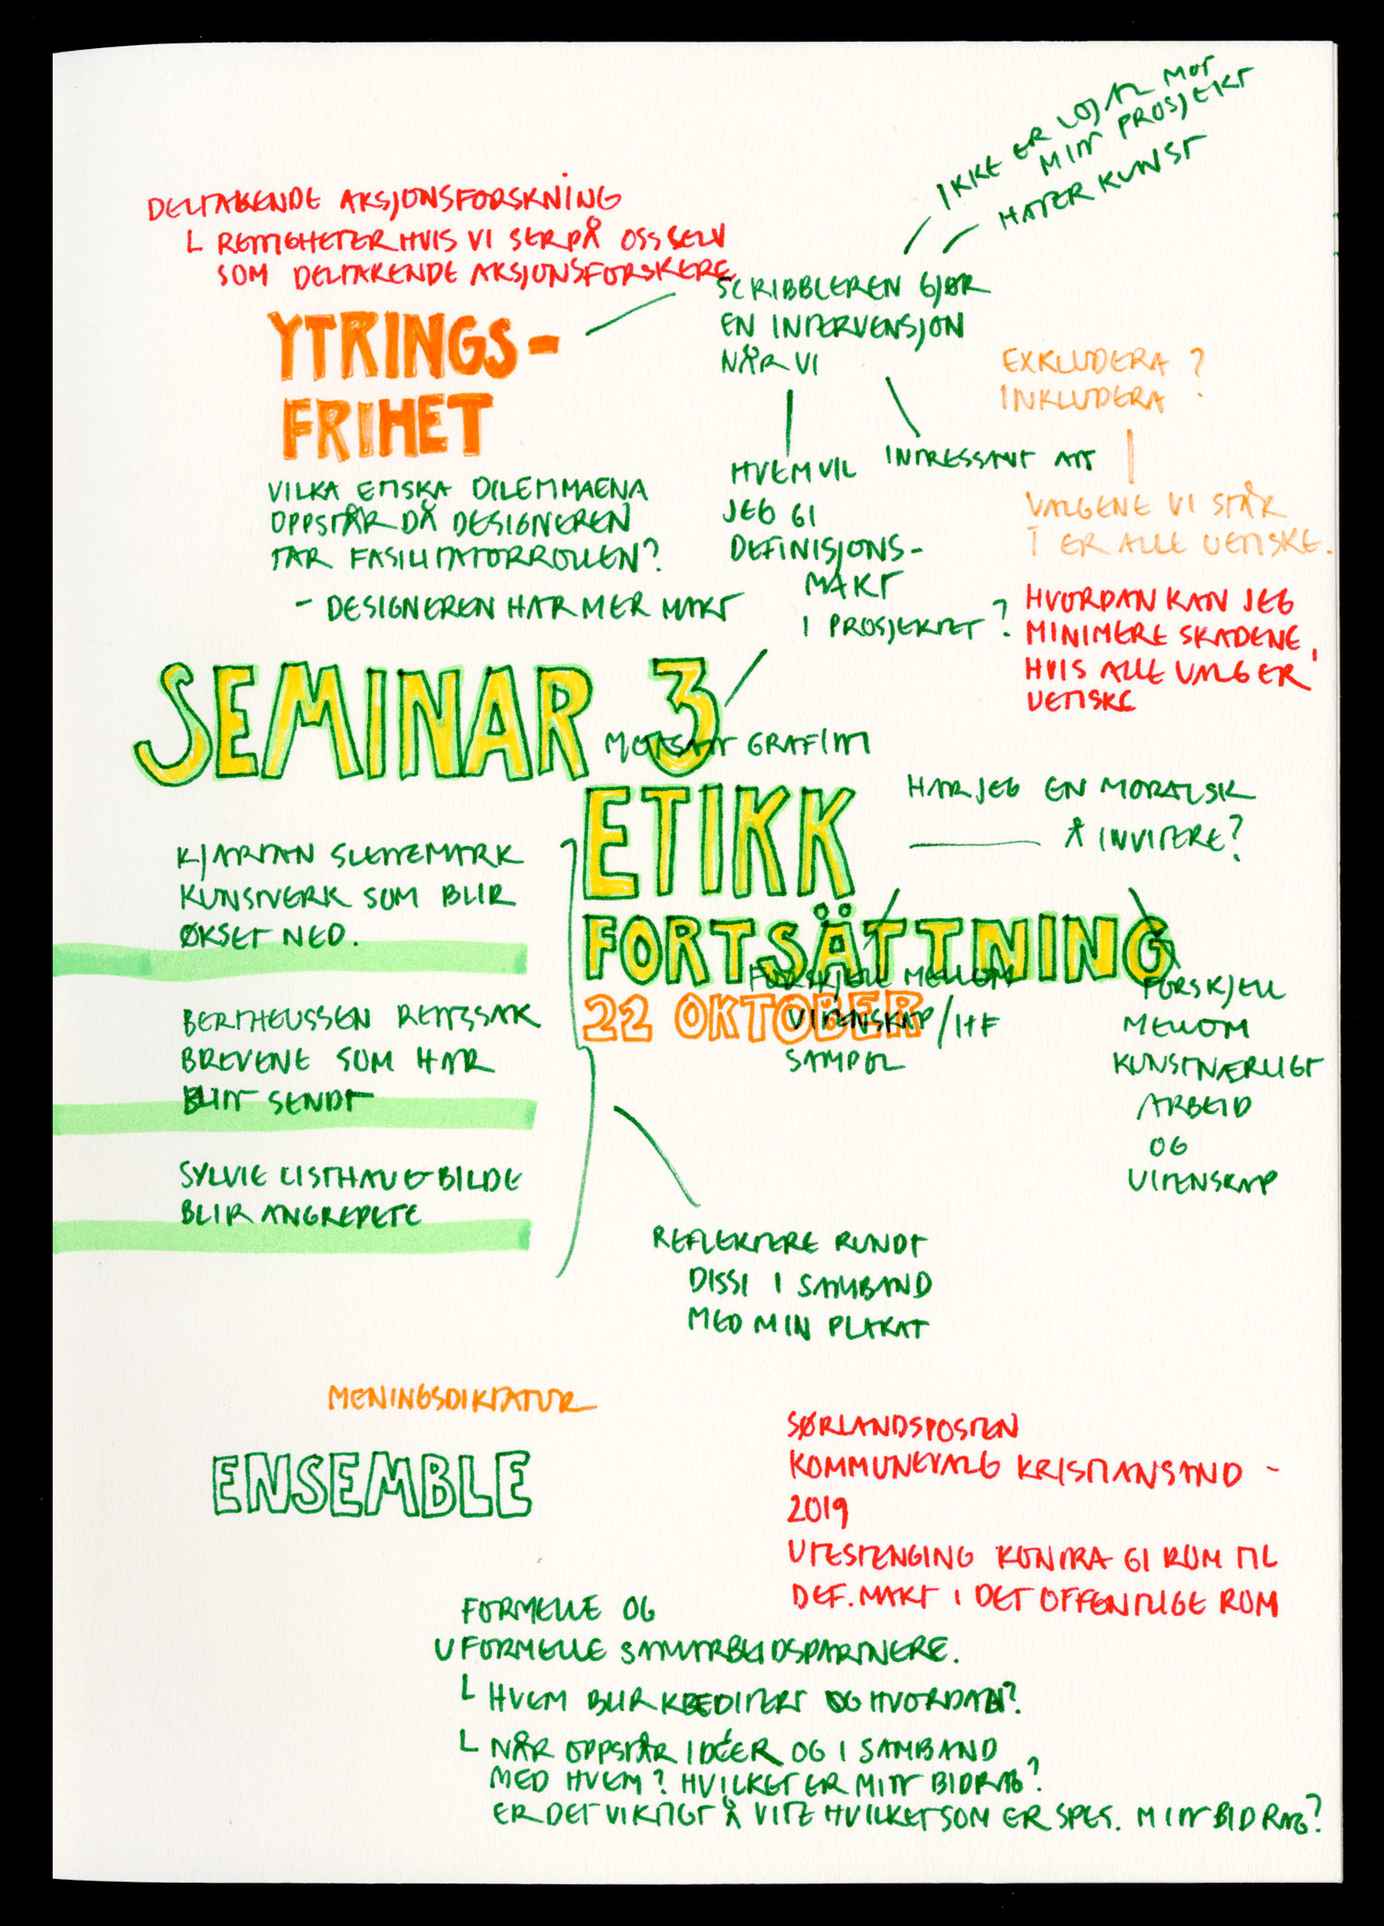 IKKE ER LOJAL MOT
MITT PROSJEKT
HATER KUNST
DELTAKENDE AKSJONSFORSKNING
RETTIGHETER HVIS VI SER PÅ OSS SELV
SOM DELTAKENDE AKSJONSFORSKERE
SCRIBBLEREN GJØR
EN INTERVENSJON
NÅR VI
YTRINGS-
FRIHET
EXKLUDERA ?
INKLUDERA
INTRESSANT ATT
HVEM VIL
JEG GI
DEFINISJONS-
MAKT
I PROSJEKTET ?
VILKA ETISKA DILEMMAENA
OPPSTÅR DÅ DESIGNEREN
TAR FASILITATORROLLEN?
- DESIGNEREN HAR MER MAKT
VALGENE VI STÅR
I ER ALLE UETISKE.
HVORDAN KAN JEG
MINIMERE SKADENE,
HVIS ALLE VALG ER
UETISKE
SEMINAR 3
MOTSATT GRAFITTI
ETIKK
FORTSÄTTNING
22 OKTOBER
HAR JEG EN MORALSK
Å INVITERE?
FORSKJELL MELLOM
VITENSKAP/HF
SAMPEL
FORSKJELL
MELLOM
KUNSTNÆRLIGT
ARBEID
OG
VITENSKAP
KJARTAN SLETTEMARK
KUNSTVERK SOM BLIR
ØKSET NED.
BERTHEUSSEN RETTSSAK
BREVENE SOM HAR
BLITT SENDT
SYLVIE LISTHAUG BILDE
BLIR ANGREPETE
REFLEKTERE RUNDT
DISSI I SAMBAND
MED MIN PLAKAT
MENINGSDIKTATUR
ENSEMBLE
SØRLANDSPOSTEN
KOMMUNEVALG KRISTIANSAND -
2019
UTESTENGING KONTRA GI ROM TIL
DEF. MAKT I DET OFFENTLIGE ROM
FORMELLE OG
UFORMELLE SAMARBEIDSPARTNERE.
HVEM BLIR KREDITERT OG HVORDAN?
NÅR OPPSTÅR IDÉER OG I SAMBAND
MED HVEM? HVILKET ER MITT BIDRAG?
ER DET VIKTIGT Å VITE HVILKET SOM ER SPES. MITT BIDRAG?